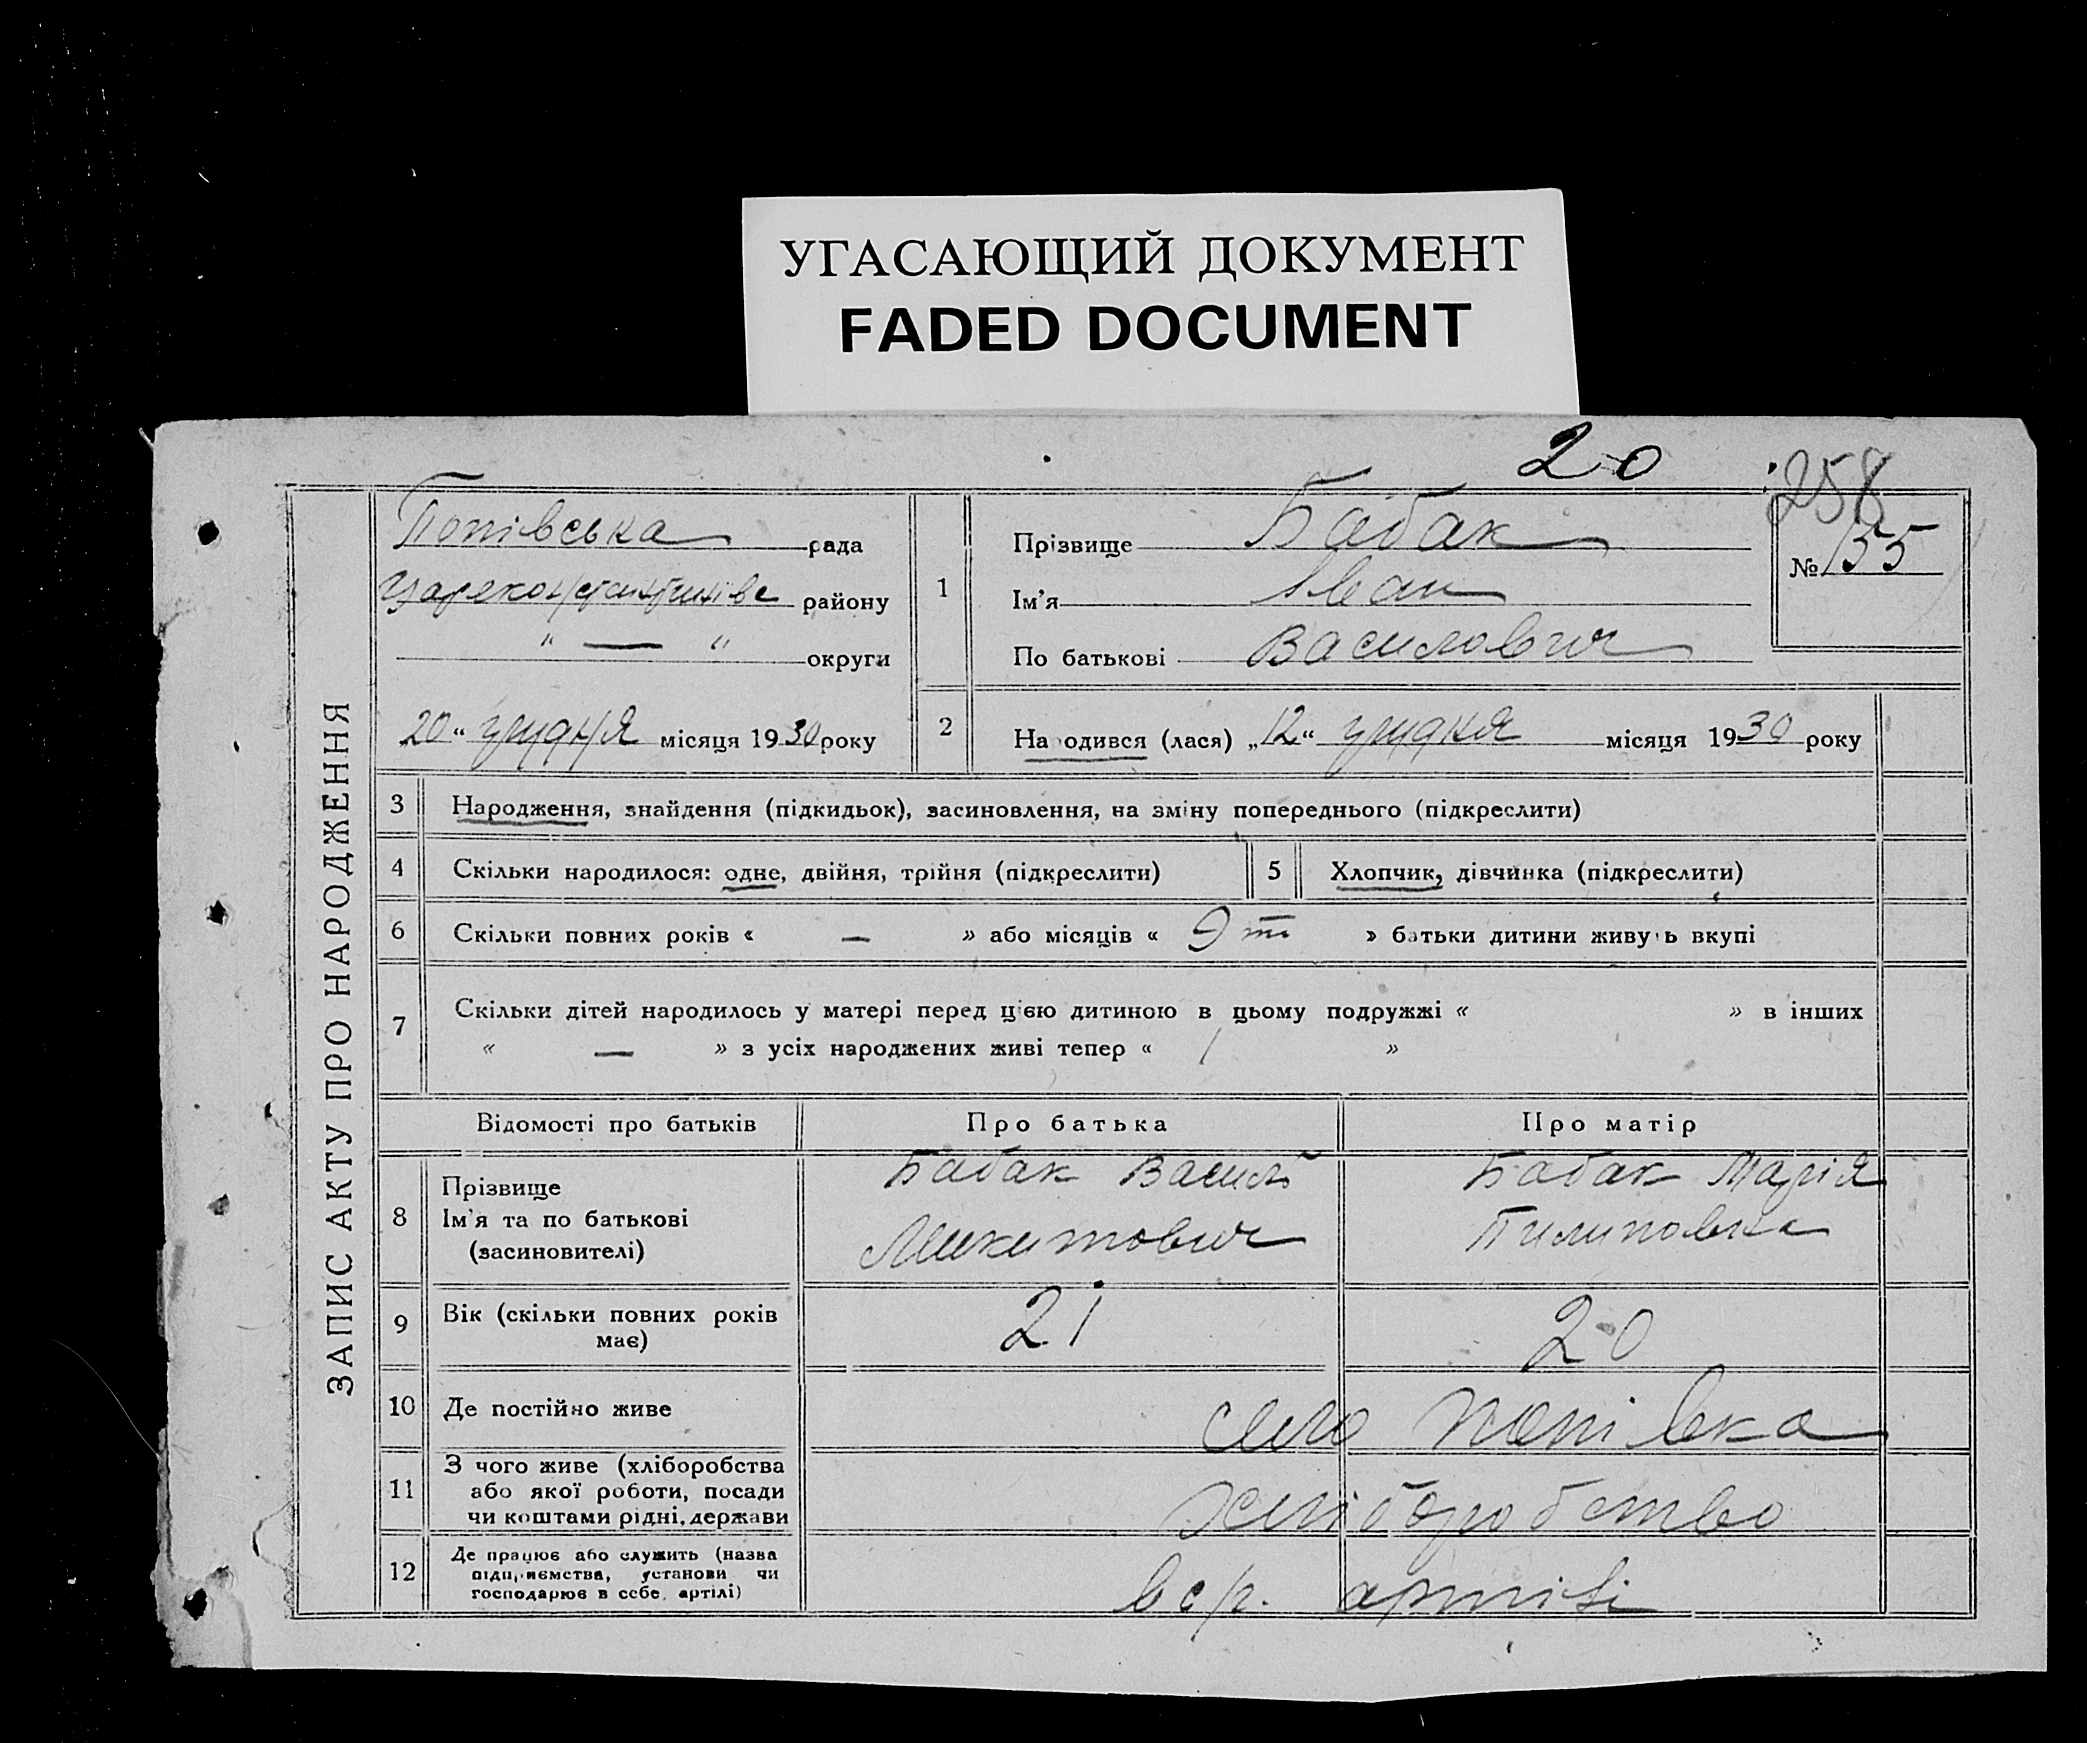 УГАСАЮЩИЙ ДОКУМЕНТ
FADED DOCUMENT
20
258
ЗАПИС АКТУ ПРО НАРОДЖЕННЯ
Попівська рада
району
" — " округи
20 " грудня місяця 1930 року
1
Прізвище Бабак
Ім'я Іван
По батькові Василович
№ 155
2 На одився (лася) „12“ грудня місяця 1930 року
3 Народження, знайдення (підкидьок), засиновлення, на зміну попереднього (підкреслити)
4 Скільки народилося: одне, двійня, трійня (підкреслити)
5 Хлопчик, дівчинка (підкреслити)
6 Скільки повних років « — » або місяців « 9 » батьки дитини живу ь вкупі
7 Скільки дітей народилось у матері перед цією дитиною в цьому подружжі « » в інших
« — » з усіх народжених живі тепер « 1 »
Відомості про батьків Про батька Про матір
8 Прізвище
Ім'я та по батькові
(засиновителі)
Бабак Василь
Микитович
Бабак Марія
Пилиповна
9 Вік (скільки повних років
має)
21 20
10 Де постійно живе село Попівка
11 З чого живе (хліборобства
або якої роботи, посади
чи коштами рідні, держави
хліборобство
12 Де працює або служить (назва
підприємства, установи чи
господарює в себе, артілі)
в с/г. артілі